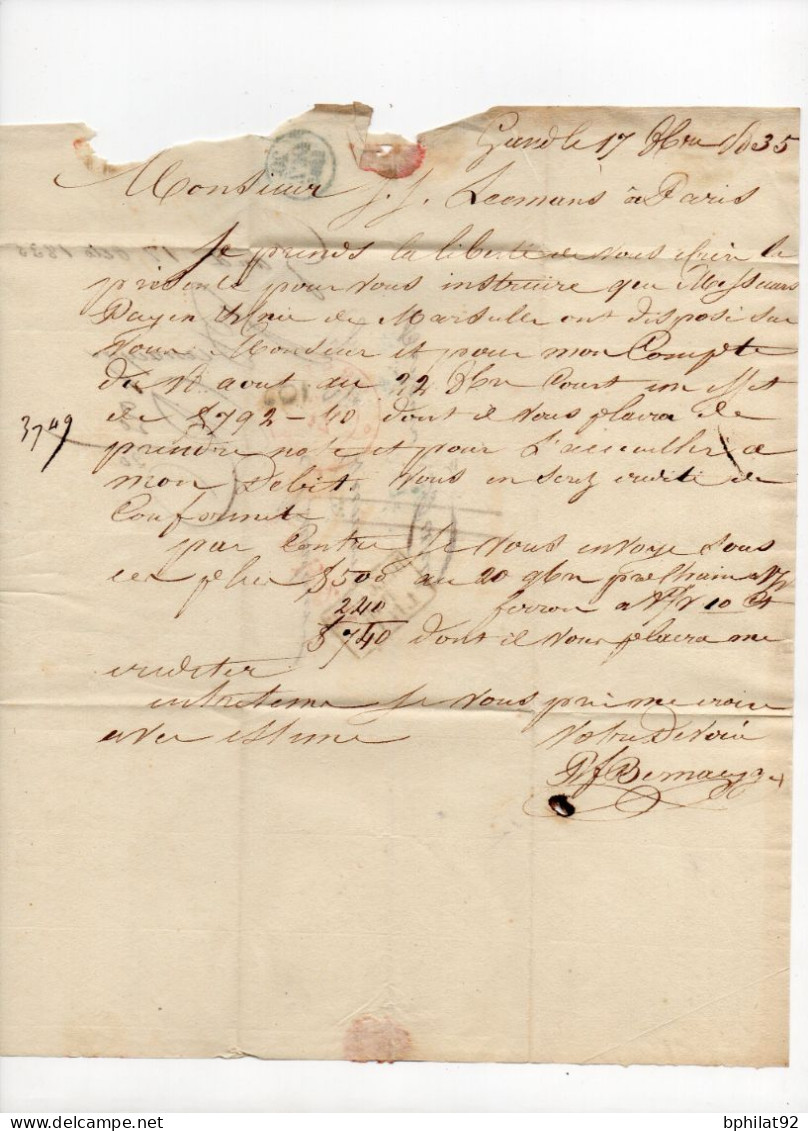 Gand le 17 8bre 1835
Monsieur J. J. Leemans à Paris
Je prends la liberté de vous écrire la
présente pour vous instruire que Messieurs
Payen de Marseille ont disposé sur
Vous Monsieur et pour mon Compte
du aout au 22 8bre Court un effet
de 3792-40 dont il vous plaira de
3749
prendre note et pour l'accueillir a
mon Debit. Vous en serez credité de
Conformité
par Contre Je vous envoye sous
ce plis $500 au 20 9bre prochain
240
$740 dont il vous plaira me
crediter
entretems Je vous prie me croire
avec estime Votre Devoué
P f Bernaey
bphilat92